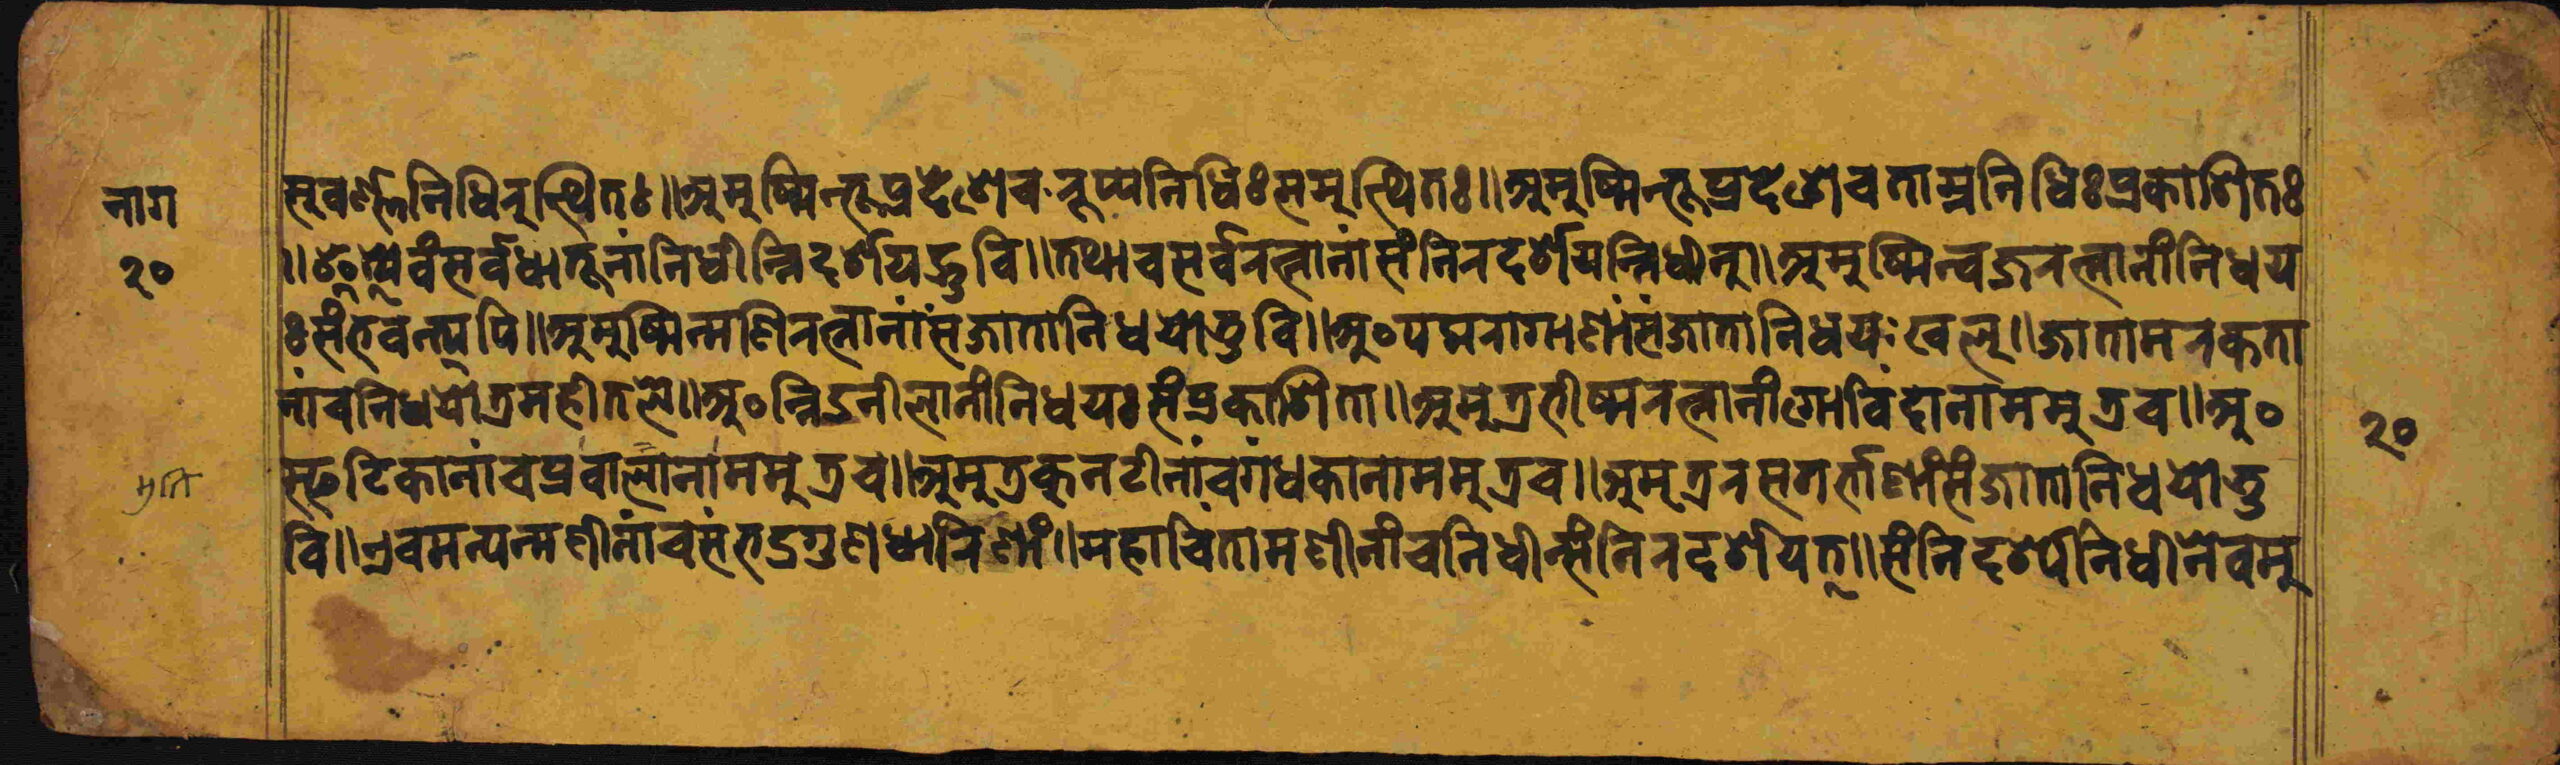 नाग
२०
सुवर्ण्णनिधिरुत्थितः॥अमुष्मिन्तूप्रदेशेच रूप्यनिधिःसमुत्थितः॥अमुष्मिन्तूप्रदेशेचताम्रनिधिःप्रकाशितः
॥इत्येवंसर्वधातूनांनिधीन्निदर्शयद्भुवि॥तथाचसर्वरत्नानांसंनिरदर्शयन्निधीनु॥अमुष्मिन्वज्ररत्नानांनिधय
ःसंभवन्त्यपि॥अमुष्मिन्मणिरत्नानांसंजातानिधयोभुवि॥अ॰पद्मरागाणांसंजातानिधयःखलु॥जातामरकता
नांचनिधयोत्रमहीतले॥अ॰न्निद्रनीलानांनिधयःसंप्रकाशिता॥अमुत्रभीष्मरत्नानांगोविंदानाममुत्रच॥अ॰
स्फटिकानांचप्रवालानाममुत्रच॥अमुत्रकुनटीनांचगंधकानाममुत्रच॥अमुत्ररसगर्भाणांसंजातानिधयोभु
वि॥एवमन्यन्मणीनांचसंभद्रगुणधारिणां॥महाचिंतामणीनांचनिधीन्संनिरदर्शयत्॥संनिदर्श्यनिधीनेवमु
२०